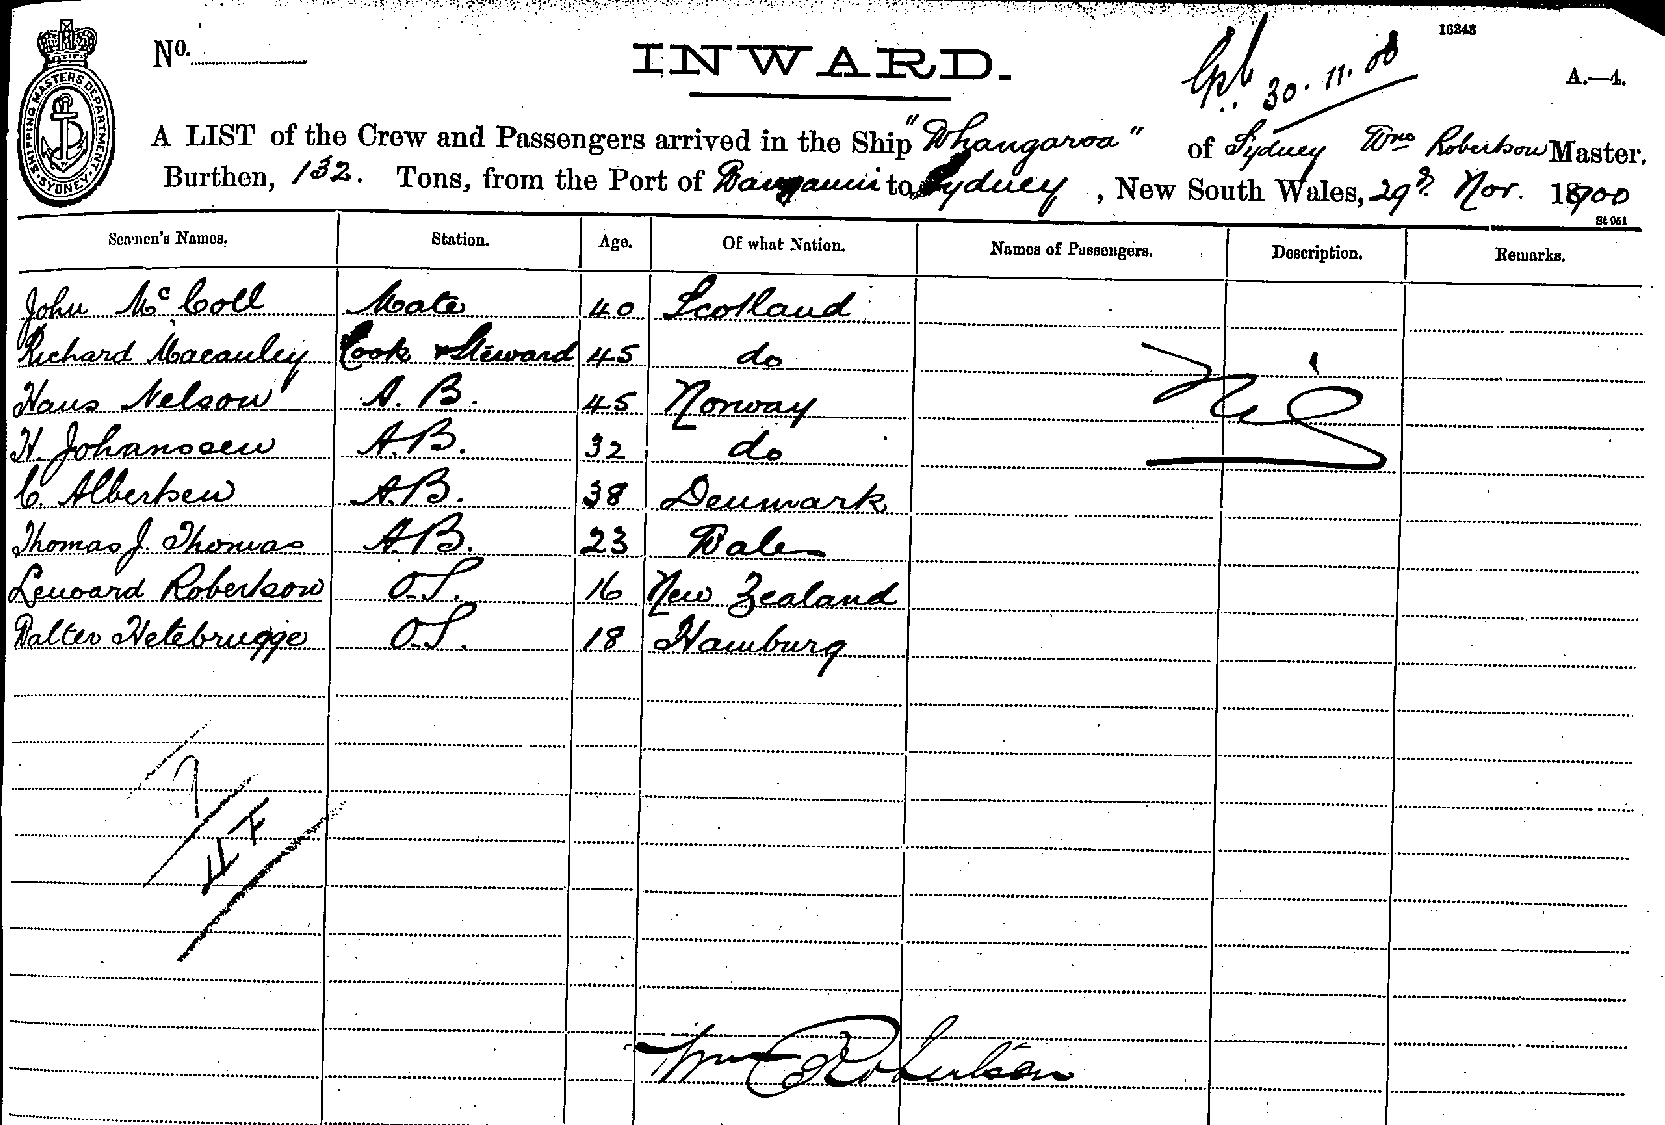 16248
No.
INWARD.
30.11.00
A.—4.
SHIPPING MASTERS DEPARTMENT
SYDNEY
A LIST of the Crew and Passengers arrived in the Ship "Whangaroa" of Sydney Wm Robertson Master.
Burthen, 132. Tons, from the Port of to Sydney, New South Wales, 29th Nov. 1900
St 951
Seamen's Names. Station. Age. Of what Nation. Names of Passengers. Description. Remarks.
John McColl Mate 40 Scotland
Richard Macauley Cook & Steward 45 do
Hans Nelson A.B. 45 Norway
H. Johanssen A.B. 32 do
Nil
C. Albertsen A.B. 38 Denmark
Thomas J. Thomas A.B. 23 Wales
Lenoard Robertson O.S. 16 New Zealand
Walter Hetebrugge O.S. 18 Hamburg
Wm Robertson